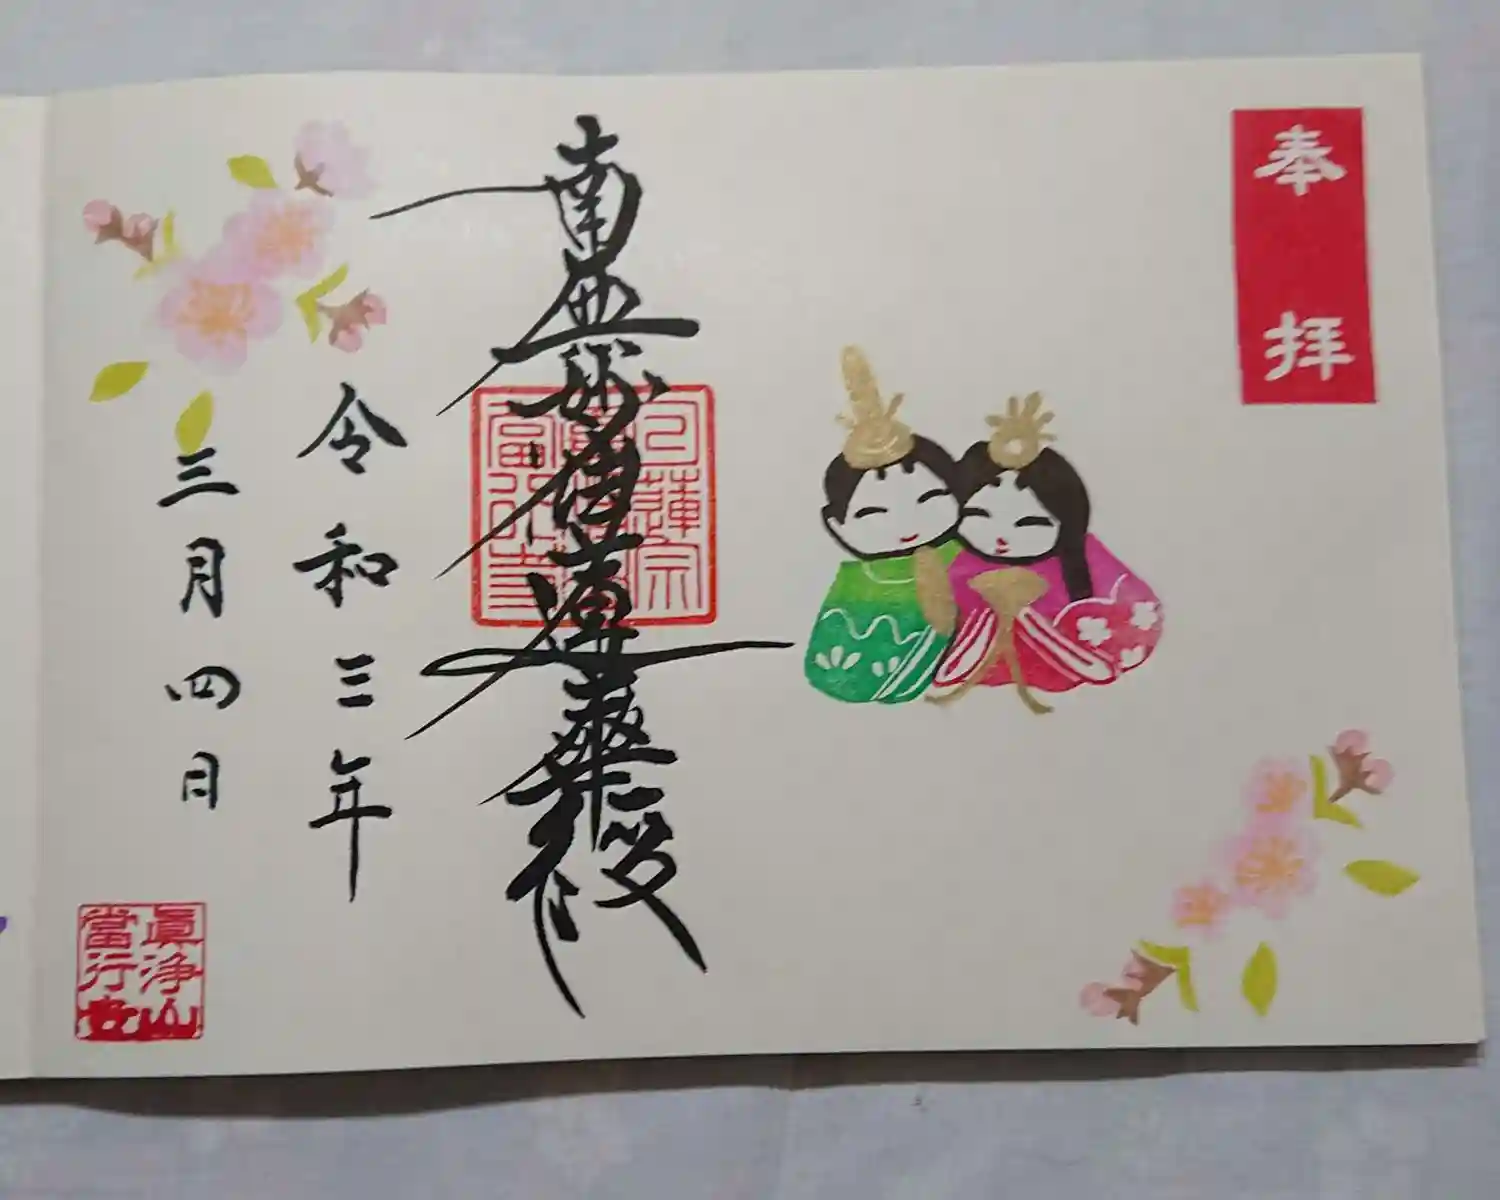 奉拝
南無妙法蓮華経
日蓮宗
當行寺
令和三年
三月四日
眞浄山
當行寺